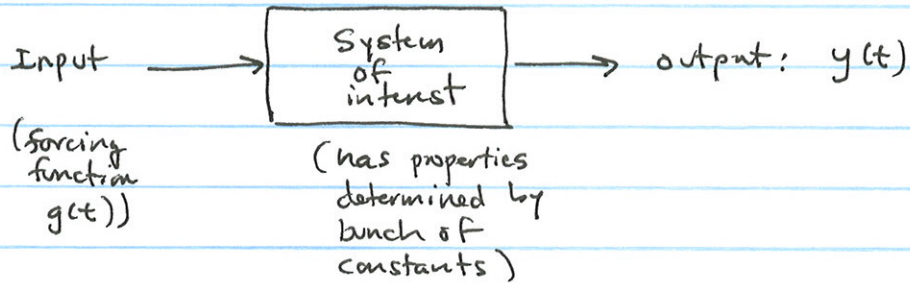 Input
System
of
interest
output: y(t)
(forcing
function
g(t))
(has properties
determined by
bunch of
constants)